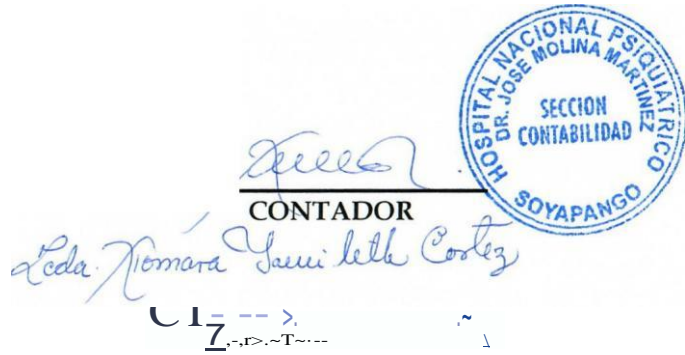 HOSPITAL NACIONAL PSIQUIATRICO
DR. JOSE MOLINA MARTINEZ
SECCION
CONTABILIDAD
SOYAPANGO
CONTADOR
Lcda. Xiomara Yamileth Cortez